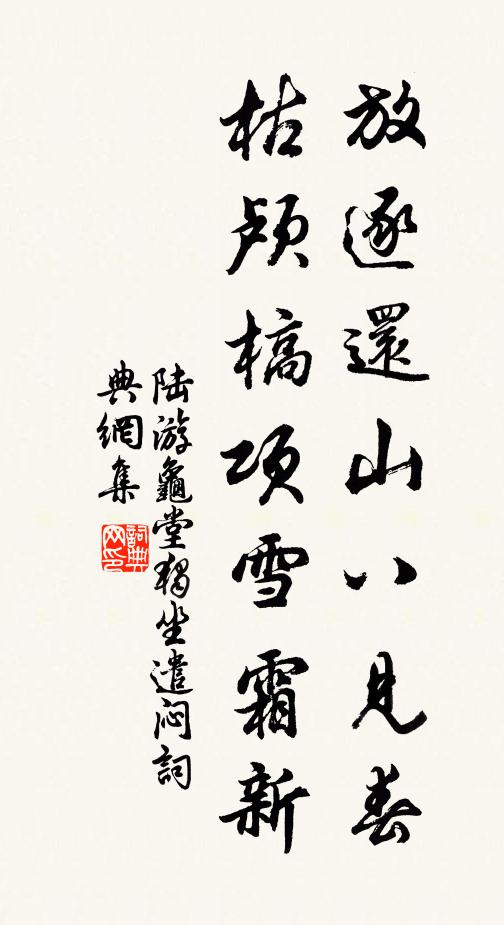 放逐還山八見春
枯顱槁項雪霜新
陆游龜堂獨坐遣悶詞
典網集
詞典
网印